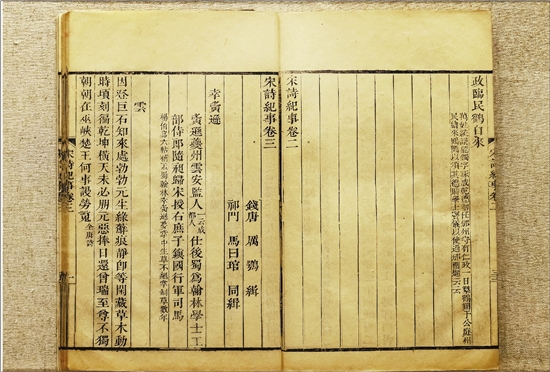 政臨民鶴自來
宋詩紀事卷二
宋詩紀事卷三
錢唐 厲鶚 緝
祁門 馬曰琯 同緝
幸夤遜
夤遜夔州雲安監人一云成都人仕後蜀爲翰林學士工
部侍郎隨昶歸宋授右庶子鎮國行軍司馬
雲
因登巨石知來處勃勃元生綠蘚痕靜卽等閑藏草木動
時頃刻徧乾坤橫天未必朋元惡捧日還曾瑞至尊不獨
朝朝在巫峽楚王何事謾勞魂 全唐詩
宋詩紀事卷三 一